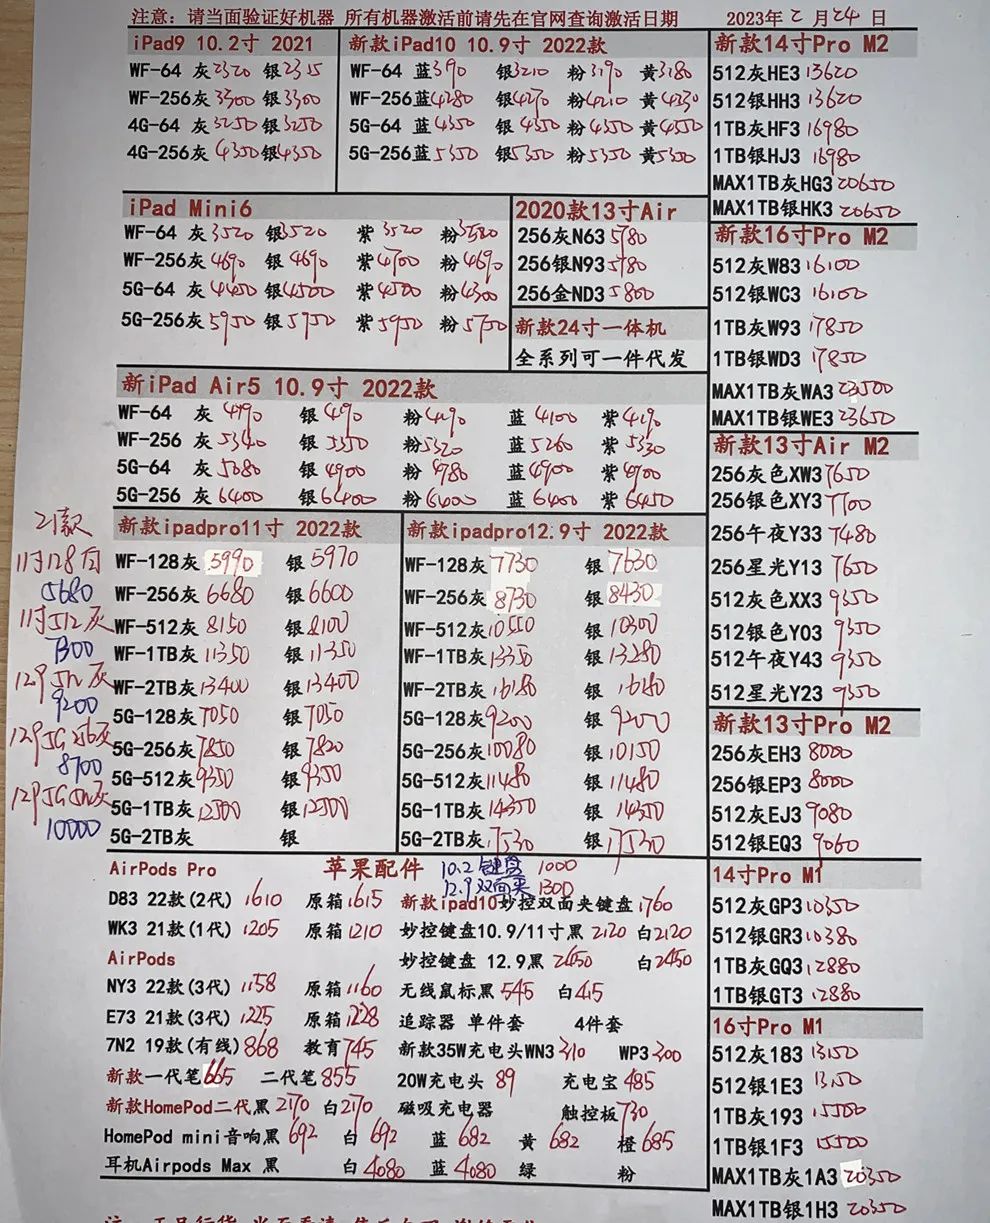 注意: 请当面验证好机器 所有机器激活前请先在官网查询激活日期 2023年2月24日
iPad9 10.2寸 2021
WF-64 灰2320 银2315
WF-256灰3300 银3300
4G-64 灰3250 银3250
4G-256灰4350 银4350
新款iPad10 10.9寸 2022款
WF-64 蓝3190 银3210 粉3190 黄3180
WF-256蓝4280 银4270 粉4210 黄4230
5G-64 蓝4350 银4350 粉4350 黄4550
5G-256蓝5350 银5350 粉5350 黄5300
iPad Mini6
WF-64 灰3520 银3520 紫3520 粉3580
WF-256灰4690 银4690 紫4700 粉4690
5G-64 灰4450 银4500 紫4500 粉4300
5G-256灰5950 银5950 紫5950 粉5750
2020款13寸Air
256灰N63 5780
256银N93 5780
256金ND3 5800
新款24寸一体机
全系列可一件代发
新iPad Air5 10.9寸 2022款
WF-64 灰4190 银4190 粉4190 蓝4100 紫4190
WF-256 灰5340 银5350 粉5320 蓝5260 紫5330
5G-64 灰5080 银4900 粉4780 蓝4900 紫4900
5G-256 灰6400 银6400 粉6400 蓝6400 紫6450
21款
11寸128白
5680
11寸512灰
7300
12.9 512灰
9200
12.9 5G 256灰
8700
12.9 5G 512灰
10000
新款ipadpro11寸 2022款
WF-128灰 5990 银5970
WF-256灰 6680 银6600
WF-512灰 8150 银8100
WF-1TB灰11350 银11350
WF-2TB灰13400 银13400
5G-128灰7050 银7050
5G-256灰7850 银7820
5G-512灰9350 银9350
5G-1TB灰12500 银12500
5G-2TB灰 银
新款ipadpro12.9寸 2022款
WF-128灰7730 银7630
WF-256灰8730 银8430
WF-512灰10550 银10300
WF-1TB灰13350 银13280
WF-2TB灰16180 银16180
5G-128灰9200 银9200
5G-256灰10080 银10150
5G-512灰11480 银11480
5G-1TB灰14350 银14350
5G-2TB灰17530 银17530
AirPods Pro 苹果配件 10.2键盘 1000
12.9双面夹 1300
D83 22款(2代) 1610 原箱1615 新款ipad10妙控双面夹键盘1760
WK3 21款(1代) 1205 原箱1210 妙控键盘10.9/11寸黑 2120 白2120
AirPods 妙控键盘 12.9黑 2450 白2450
NY3 22款(3代) 1158 原箱1160 无线鼠标黑 545 白415
E73 21款(3代) 1225 原箱1228 追踪器 单件套 4件套
7N2 19款(有线)868 教育745 新款35W充电头WN3 310 WP3 300
新款一代笔665 二代笔855 20W充电头 89 充电宝485
新款HomePod二代黑 2170 白2170 磁吸充电器 触控板730
HomePod mini音响黑692 白692 蓝682 黄682 橙685
耳机Airpods Max 黑 白4080 蓝4080 绿 粉
新款14寸Pro M2
512灰HE3 13620
512银HH3 13620
1TB灰HF3 16980
1TB银HJ3 16980
MAX1TB灰HG3 20650
MAX1TB银HK3 20650
新款16寸Pro M2
512灰W83 16100
512银WC3 16100
1TB灰W93 17850
1TB银WD3 17850
MAX1TB灰WA3 23500
MAX1TB银WE3 23650
新款13寸Air M2
256灰色XW3 7650
256银色XY3 7700
256午夜Y33 7480
256星光Y13 7650
512灰色XX3 9350
512银色Y03 9350
512午夜Y43 9350
512星光Y23 9350
新款13寸Pro M2
256灰EH3 8000
256银EP3 8000
512灰EJ3 9080
512银EQ3 9060
14寸Pro M1
512灰GP3 10350
512银GR3 10380
1TB灰GQ3 12880
1TB银GT3 12880
16寸Pro M1
512灰183 13150
512银1E3 13150
1TB灰193 15500
1TB银1F3 15500
MAX1TB灰1A3 20350
MAX1TB银1H3 20350